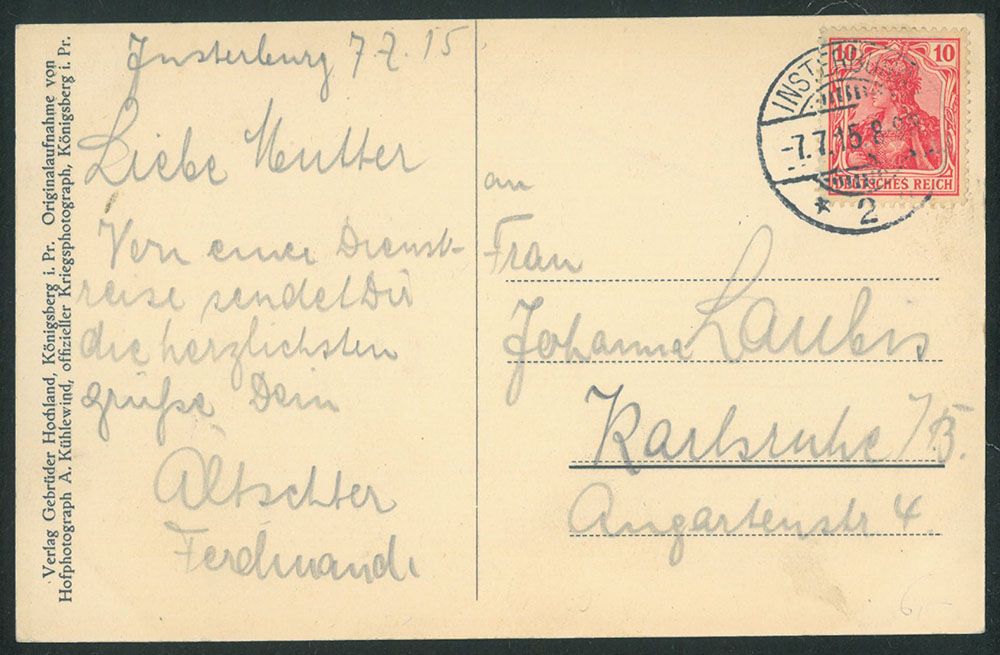 Verlag Gebrüder Hochland, Königsberg i. Pr. Originalaufnahme von
Hofphotograph A. Kühlewind, offizieller Kriegsphotograph, Königsberg i. Pr.
Insterburg 7.7.15
Liebe Mutter
Von einer Dienst-
reise sendet Dir
die herzlichsten
grüße Dein
Ältschter
Ferdinand.
10 10
DEUTSCHES REICH
INSTERBURG
-7.7.15.8
* 2
an
Frau
Johanna Laubis
Karlsruhe /B.
Augartenstr 4.
6,-